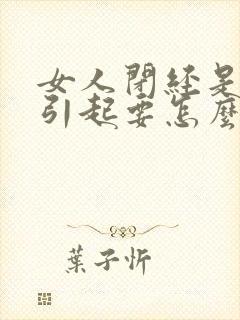 女人閉経是
引起要怎麼
葉子忻